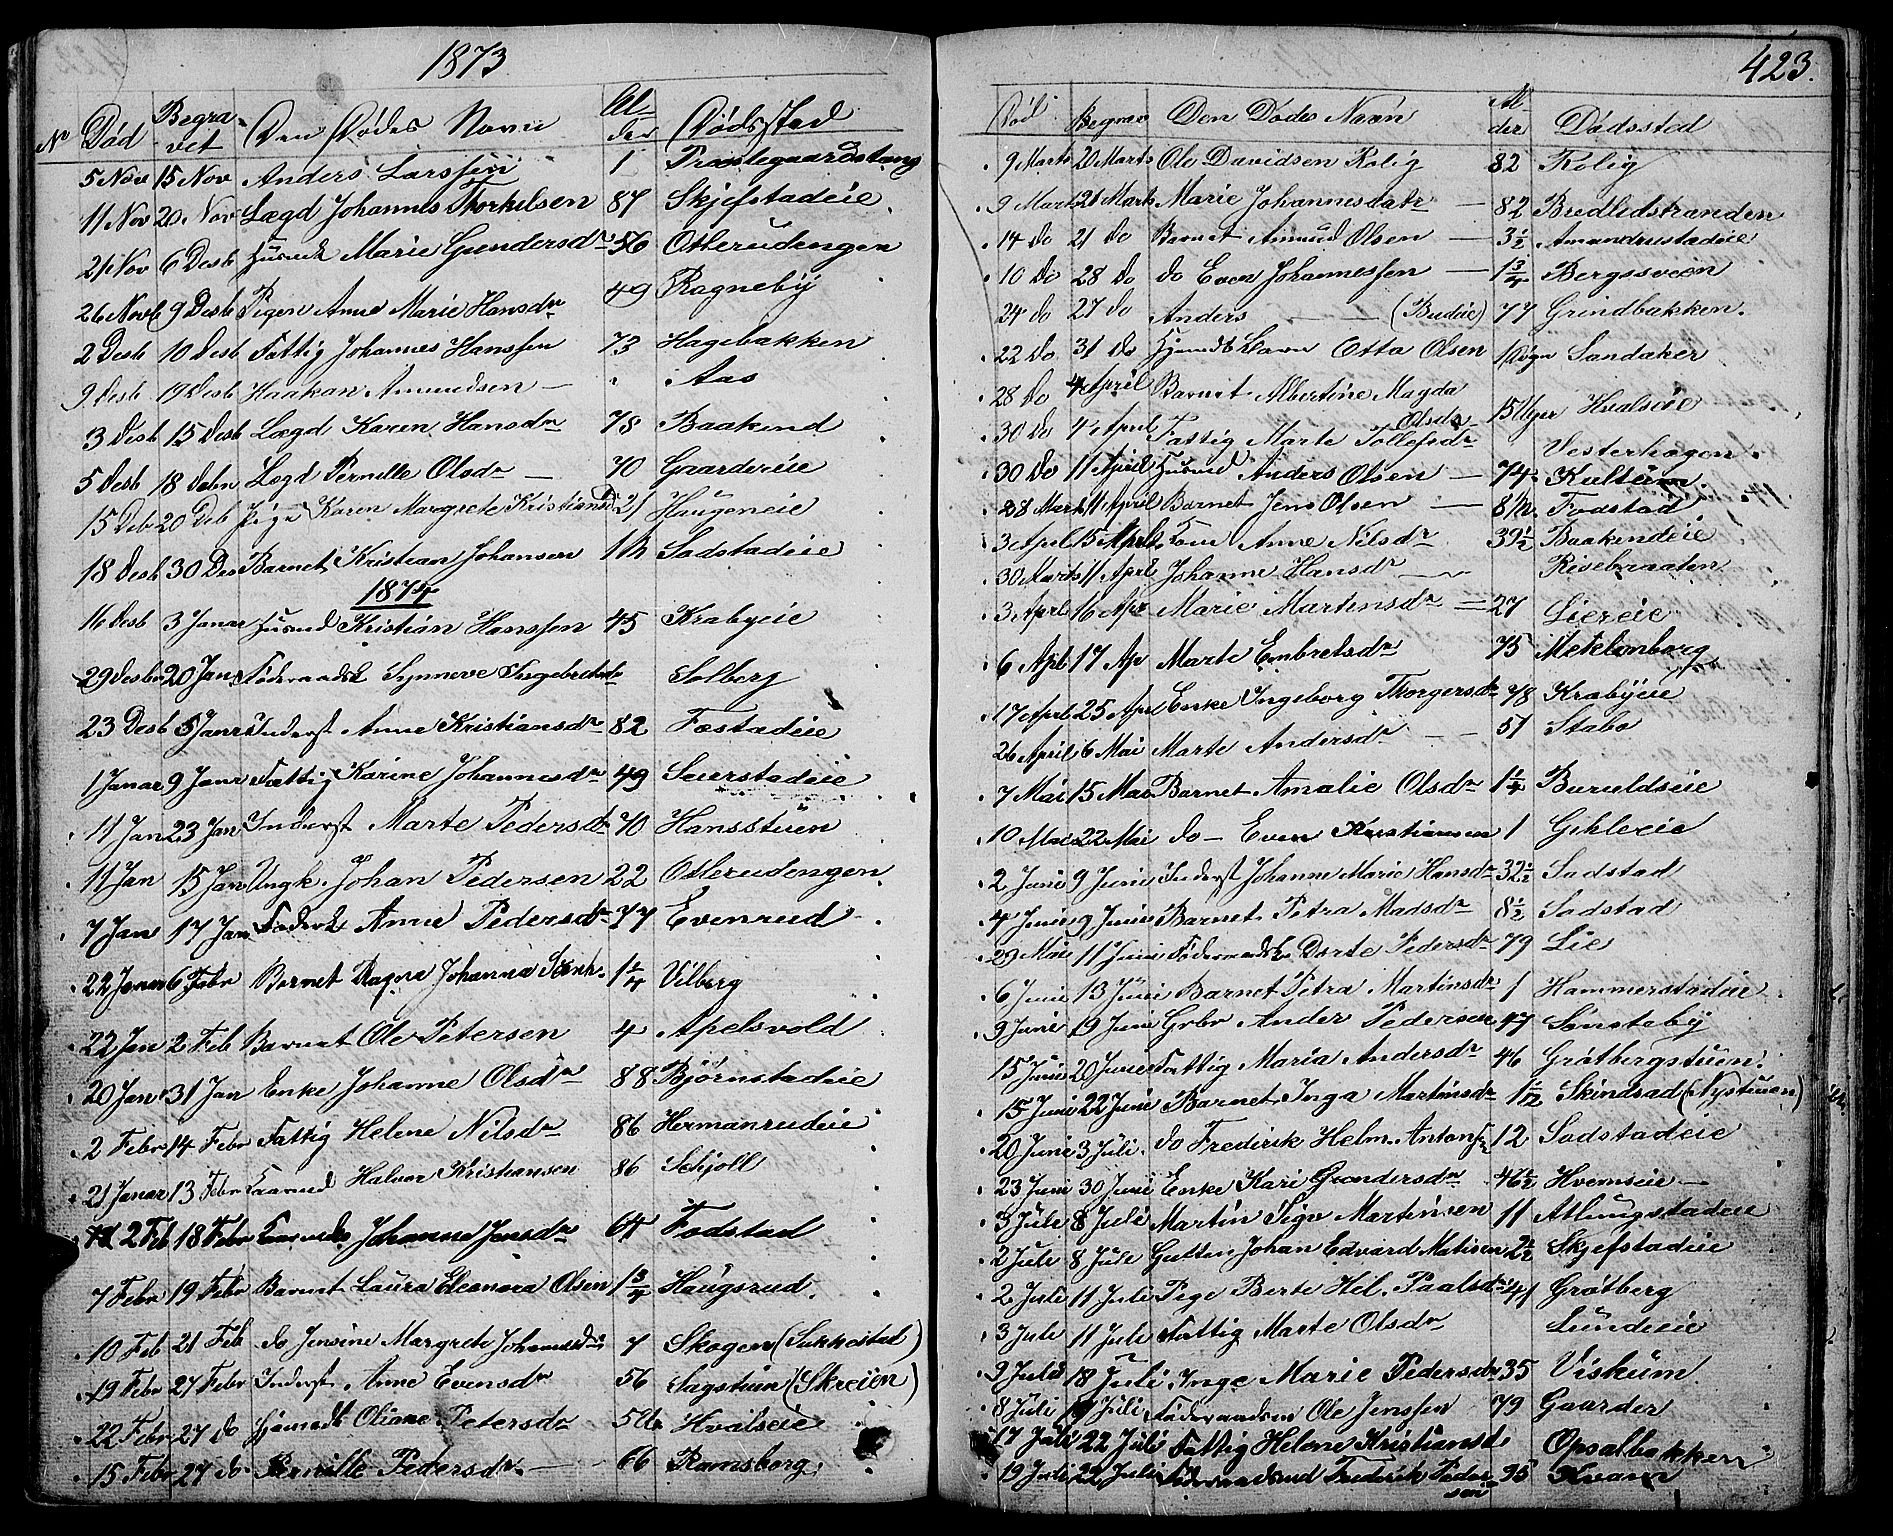 1873
Nr Død Begravet Den Dødes Navn Alder Dødsstad
5 Nov 15 Nov Anders Larssen 1 Præstegaardstang
11 Nov 20 Nov Lægd Johannes Thorkelsen 87 Skjefstadeie
21 Nov 6 Desb Marie Gundersdr 56 Otterudengen
26 Novb 9 Desb Pigen Anne Marie Hansdr 49 Ragneby
2 Desb 10 Desb Fattig Johannes Hanssen 73 Hagebakken
9 Desb 19 Desb Haakan Amundsen — Aas
3 Desb 15 Desb Lægd Karen Hansdr 78 Baakend
5 Desb 18 Debn Lægd Pernille Olsdr — 70 Gaardereie
15 Deb 20 Deb Pige Karen Margrete Kristiansd 21 Haugeneie
18 Desb 30 Des Barnet Kristian Johansen Sadstadeie
1874
16 Desb 3 Janar Husmd Kristian Hanssen 45 Krabyeie
29 Desbr 20 Jan Synneve Ingebretsdr Solberg
23 Desb 5 Janr Inderst Anne Kristiansdr 82 Fæstadeie
1 Janar 9 Janr Fattig Karine Johannesdr 49 Seierstadeie
11 Jan 23 Jan Inderst Marte Pedersdr 70 Hansstuen
11 Jan 15 Jan Ungk. Johan Pedersen 22 Otterudengen
7 Jan 17 Jan Anne Pedersdr 77 Evenrud
22 Janar 6 Febr Barnet Ragna Johanna 1 1/4 Vilberg
22 Jan 2 Feb Barnet Ole Petersen 4 Apelsvold
20 Jan 31 Jan Enke Johanne Olsdr 88 Bjørnstadeie
2 Febr 14 Febr Fattig Helene Nilsdr 86 Hermanrudeie
21 Janar 13 Febr Halvor Kristiansen 86 Schjoll
12 Feb 18 Febr Johanne Jensdr 64 Fodstad
7 Febr 19 Febr Barnet Laura Eleonora Olsen 1 3/4 Haugsrud.
10 Feb 21 Feb do Jensine Margrete Johannesdr 7 Skogen (Sukkestad)
19 Febr 27 Febr Inderst Anne Evensdr 56 Sagstuen (Skreien)
22 Febr 27 do Hjemedt Oliane Petersdr Hvalseie
15 Febr 27 do Pernille Pedersdr — 66 Ramsborg
423.
Død Begrav Den Dødes Navn Alder Dødssted
9 Marts 20 Marts Ole Davidsen Kolig 82 Kolig
9 Mart 21 Marts Marie Johannesdatr — 82 Bredlidstranden
14 do 21 do Barnet Amund Olsen — 3 1/2 Amundrustadeie
10 do 28 do do Even Johannessen — 1 3/4 Bergsveen
24 do 27 do Anders — (Budeie) 77 Grindbakken.
22 do 31 do Hjemdt Barn Otto Olsen Sandaker
28 do 4 April Barnet Albertine Magda
Olsdr 15 Uger Hvalseie
30 do 4 April Fattig Marte Tollefsdr Vesterhagen
30 do 11 April Husmd Anders Olsen — 74 Kultum
28 Mart 11 April Barnet Jens Olsen — Fodstad
3 April 15 April Anne Nilsdr 39 1/2 Baakendeie
30 Marts 11 April Johanne Hansdr — Risebraaten
3 Aprl 16 Apr Marie Martinsdr — 27 Liereie
6 Apl 17 Ap Marte Embretsdr 75 Meklenborg
17 Aprl 25 Apl Enke Ingeborg Thorgersdr 78 Krabyeie
26 April 6 Mai Marte Andersdr — 51 Stabo
7 Mai 15 Mai Barnet Amalie Olsdr 1 1/4 Buruldseie
10 Mai 22 Mai do — Even Kristiansen 1 Gihleeie
2 Juni 9 Juni Inderst Johanne Marie Hansdr 32 1/2 Sadstad
4 Juni 9 Juni Barnet Petra Madsdr 8 1/2 Sadstad
29 Mai 11 Juni Dorte Pedersdr 79 Lie
6 Juni 13 Juni Barnet Petra Martinsdr 1 Hammerstadeie
9 Juni 19 Juni Grbr Ander Pedersen 47 Sønsteby
15 Juni 20 Juni Fattig Maria Andersdr 46 Grøtbergstuen.
15 Juni 22 Juni Barnet Inga Martinsdr 1 1/12 Skindsad (Nystuen)
20 Juni 3 Juli do Fredirik Helm. Antons 12 Sadstadeie
23 Juni 30 Juni Enke Kari Gundersdr 46 1/2 Hvemseie —
3 Juli 8 Juli Martin Sigv Martinsen 11 Allungstadeie
2 Juli 8 Juli Gutten Johan Edvard Matisen 2 1/2 Skjefstadeie
2 Juli 11 Juli Pige Berte Hel. Paalsdr 41 Grøtberg
3 Juli 11 Juli Fattig Marte Olsdr Lundeeie
9 Juli 18 Juli Inge Marie Pedersdr 35 Viskum.
8 Juli Juli Ole Jenssen 79 Gaarder
17 Juli 22 Juli Fattig Helene Kristiansd Opsalbakken
19 Juli 22 Juli Frederik Peder- 95 Kvam
sen